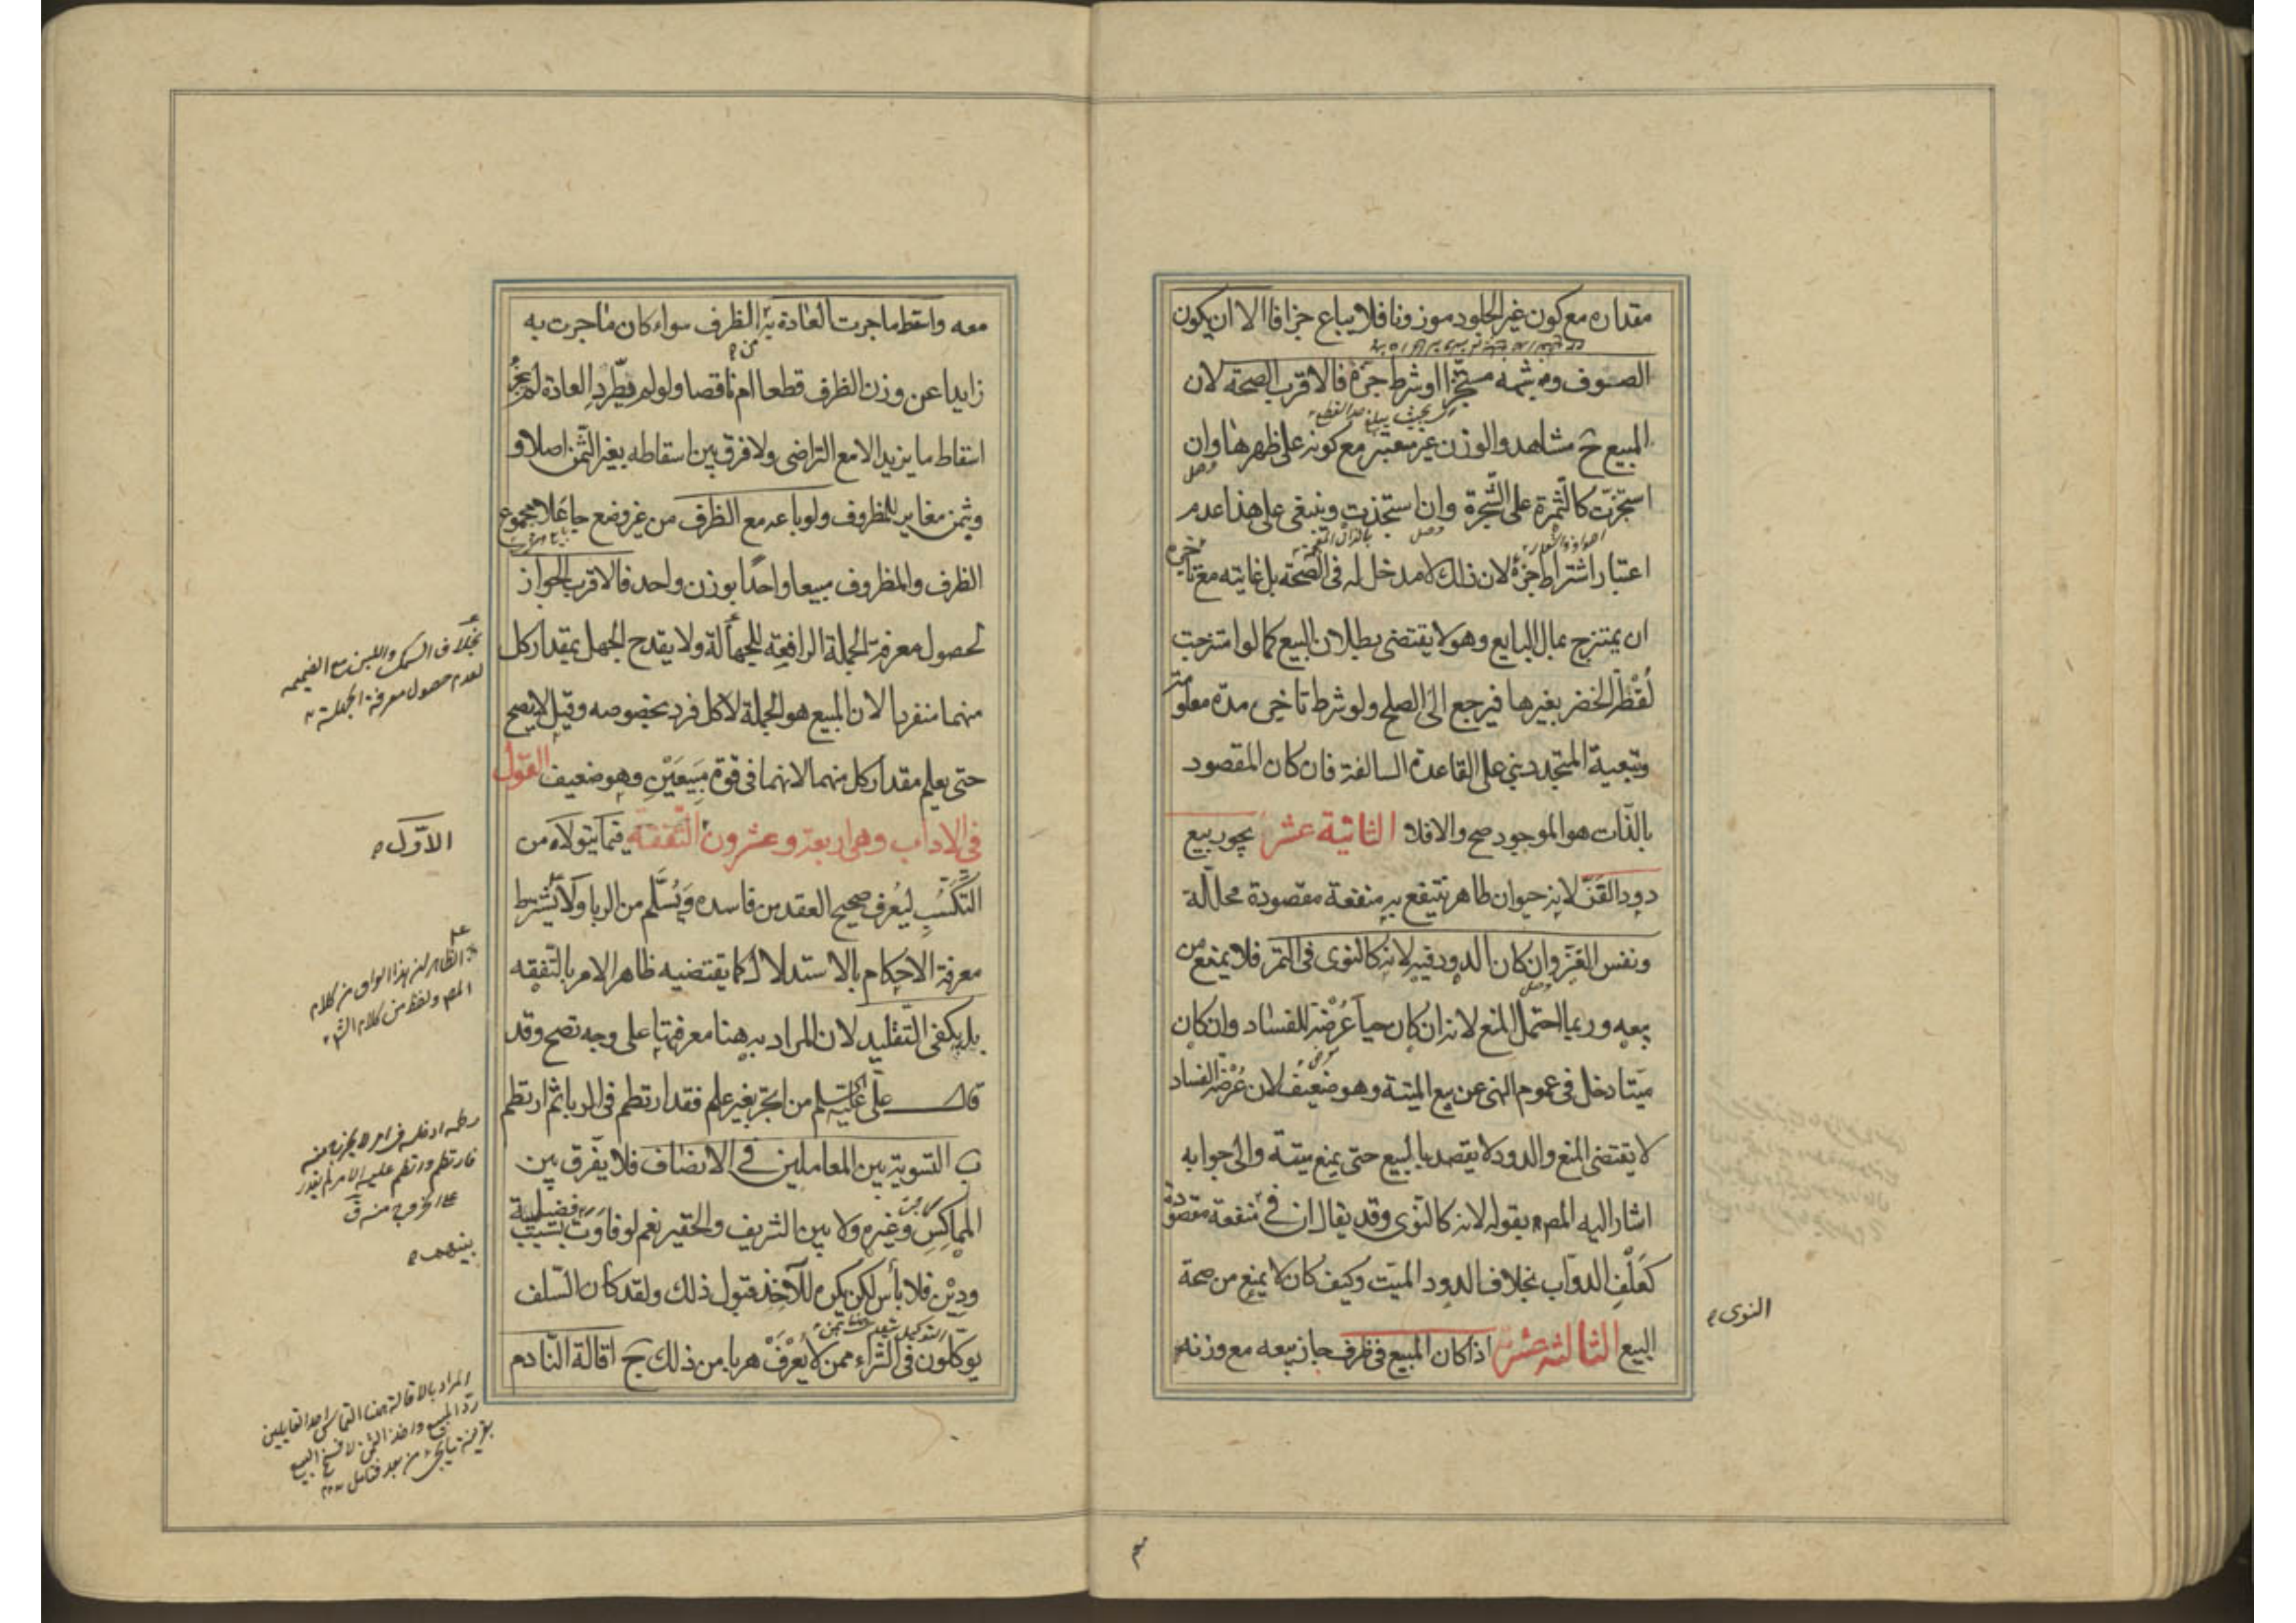 مقداره مع كون غير الجلود موزونا فلا يباع جزافا الا ان يكون
الصوف وشبهه مستجزا او شرط جزه فالاقرب الصحة لان
المبيع ح مشاهد والوزن غير معتبر مع كونه على ظهرها وان
استجزت كالثمرة على الشجرة وان استجذت وينبغى على هذا عدم
اعتبار اشتراط جزه لان ذلك لا مدخل له فى الصحة بل غايته مع تاخيره
ان يمتزج بمال البايع وهو لا يقتضى بطلان البيع كما لو امتزجت
لقطة الخضر بغيرها فيرجع الى الصلح ولو شرط تاخيره مدة معلومة
وتبعية المتجدد بنى على القاعدة السالفة فان كان المقصود
بالذات هو الموجود صح والا فلا الثانية عشر يجوز بيع
دود القز لانه حيوان طاهر ينتفع به منفعة مقصودة محللة
ونفس القز وان كان الدود فيه لانه كالنوى فى التمر فلا يمنع من
بيعه وربما احتمل المنع لانه ان كان حيا عرضة للفساد وان كان
ميتا دخل فى عموم النهى عن بيع الميتة وهو ضعيف لان عرضة الفساد
لا يقتضى المنع والدود لا يقصد بالبيع حتى يمنع ميتة والى جوابه
اشار اليه المص بقوله لانه كالنوى وقد يقال ان فى منفعة مقصودة
كعلف الدواب بخلاف الدود الميت وكيف كان لا يمنع من صحة
النوى
البيع الثالثة عشرة اذا كان المبيع فى ظرف جاز بيعه مع وزنه
معه واسقط ما جرت العادة به للظرف سواء كان ما جرت به
زايدا عن وزن الظرف قطعا ام ناقصا ولو لم يطرد العادة لم يجز
اسقاط ما يزيد الا مع التراضى ولا فرق بين اسقاطه بغير الثمن اصلا و
وثمن مغاير للمظروف ولو باعه مع الظرف من غير وضع جاعلا مجموع
الظرف والمظروف مبيعا واحدا بوزن واحد فالاقرب الجواز
لحصول معرفة الجملة الرافعة للجهالة ولا يقدح الجهل بمقدار كل
بخلاف السمك واللبن مع الضميمه
لعدم حصول معرفة الجملة
منهما منفردا لان المبيع هو الجملة لا كل فرد بخصوصه وقيل لا يصح
حتى يعلم مقدار كل منهما لانهما فى قوة مبيعين وهو ضعيف القول
فى الاداب وهى اربعة وعشرون التفقه فيما يتولاه من
الاول
التكسب ليعرف صحيح العقد من فاسده ويسلم من الربا ولا يشترط
معرفة الاحكام بالاستدلال كما يقتضيه ظاهر الامر بالتفقه
الظاهر ان هذا الواو من كلام
المص ولفظ من كلام الش
بل يكفى التقليد لان المراد به هنا معرفتها على وجه تصح وقد
قال على عليه السلم من اتجر بغير علم فقد ارتطم فى الربا ثم ارتطم
ب التسوية بين المعاملين فى الانصاف فلا يفرق بين
المماكس وغيره ولا بين الشريف والحقير نعم لو فاوت بسبب فضيلة
بينهم
ودين فلا بأس لكن يكره للآخذ قبول ذلك ولقد كان السلف
يوكلون فى الشراء ممن لا يعرف هربا من ذلك ج اقالة النادم
المراد بالاقالة هنا التماس احد المتقابلين
رد المبيع واخذ الثمن لا فسخ البيع